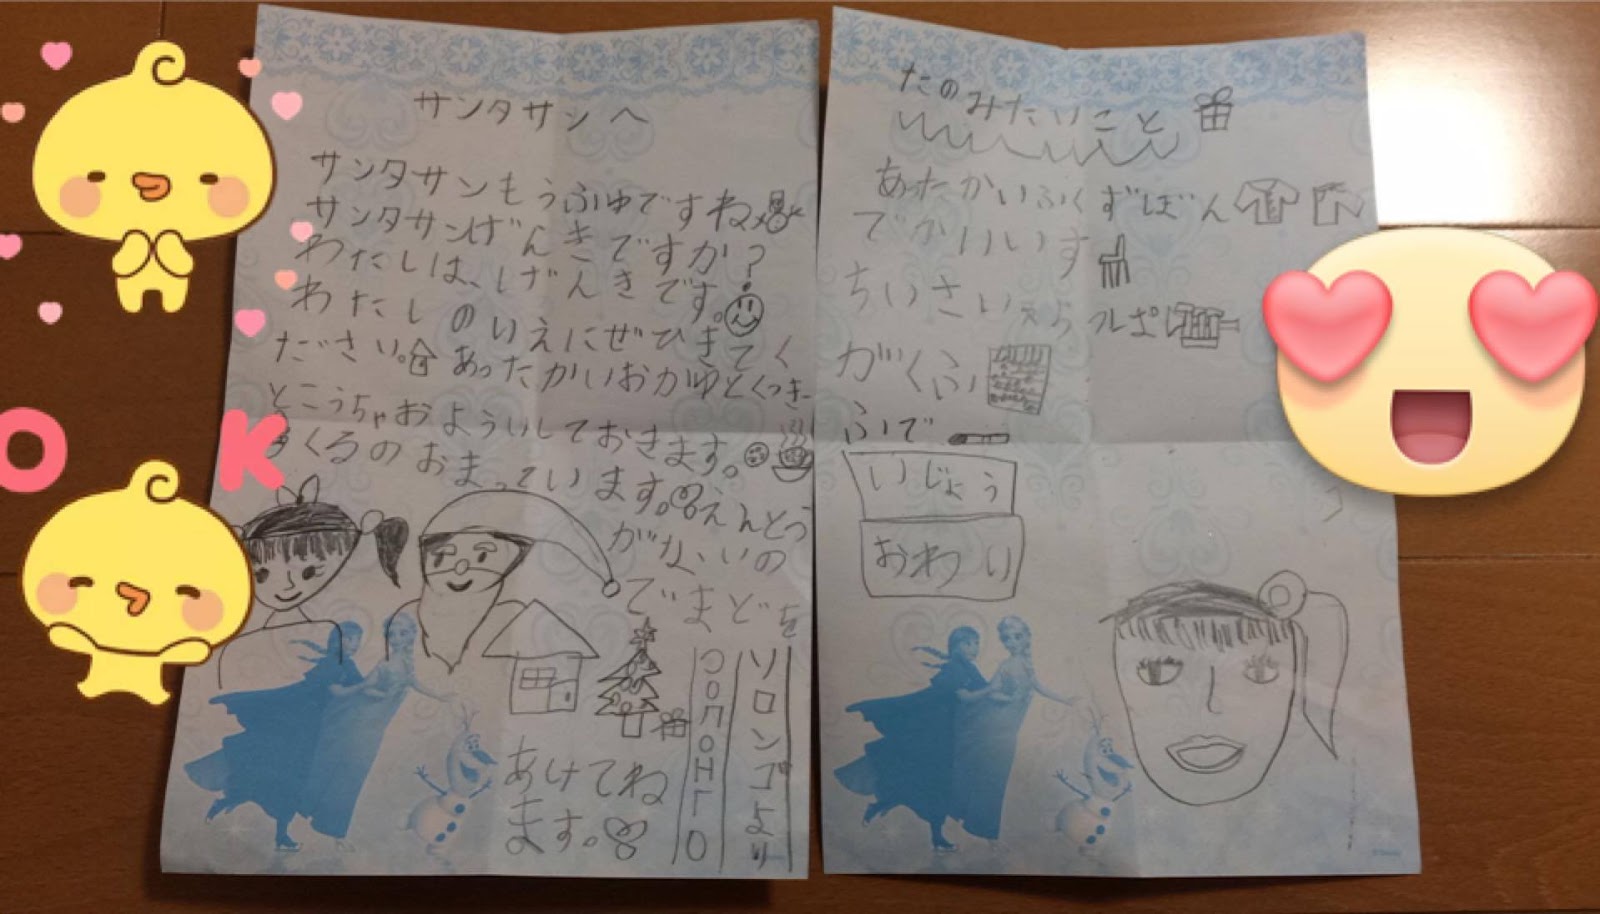 サンタサンへ
サンタサンもうふゆですね
サンタサンげんきですか?
わたしは、げんきです。
わたしのいえにぜひきてく
ださい。あったかいおかゆとくっきー
とこうちゃおよういしておきます。
くるのおまっています。えんとつ
がないの
でまどを
あけてね
ます。
ソロンゴより
СОЛОНГО
たのみたいこと
あったかいふくずぼん
でかいいす
ちいさい
がくふ
ふで
いじょう
おわり
OK